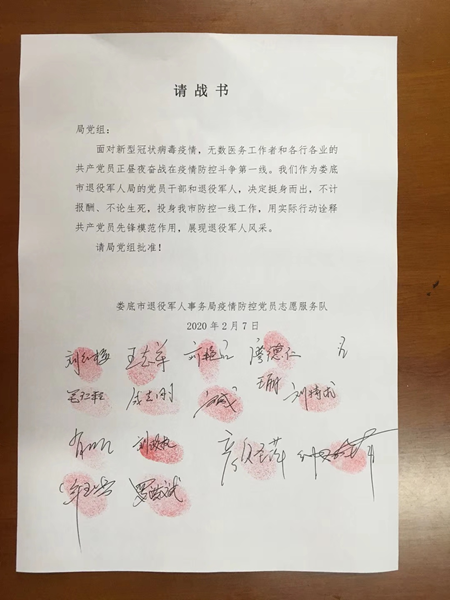 请战书
局党组：
面对新型冠状病毒疫情，无数医务工作者和各行各业的
共产党员正昼夜奋战在疫情防控斗争第一线。我们作为娄底
市退役军人局的党员干部和退役军人，决定挺身而出，不计
报酬、不论生死，投身我市防控一线工作，用实际行动诠释
共产党员先锋模范作用，展现退役军人风采。
请局党组批准！
娄底市退役军人事务局疫情防控党员志愿服务队
2020年2月7日